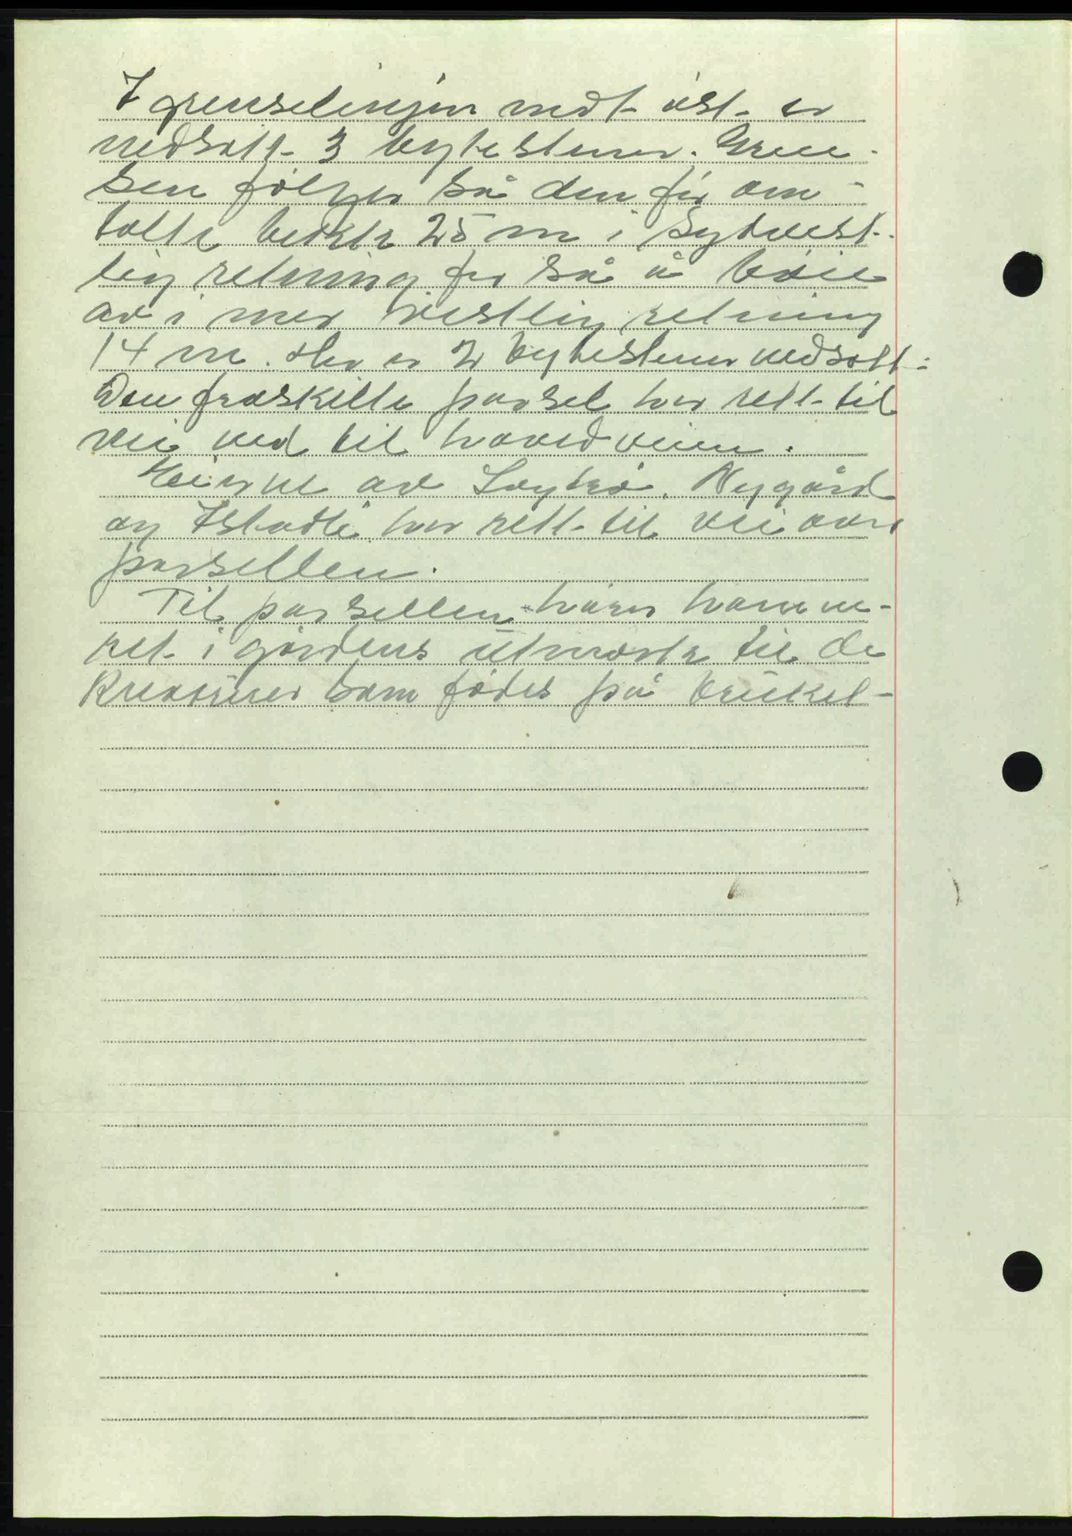 I grenselinjen mot øst er
nedsatt 3 bytestener. Gren-
sen følger så den før om-
talte bekk 25 m i sydvest-
lig retning for så å bøie
av i mer vestlig retning
14 m. Her er 2 bytestener nedsatt.
Den fraskilte parsel har rett til
vei ned til hovedveien.
av Nygård
og har rett til vei over
parsellen.
Til parsellen hører hamne-
ret i gårdens utmark til de
kreaturer som fødes på bruket-